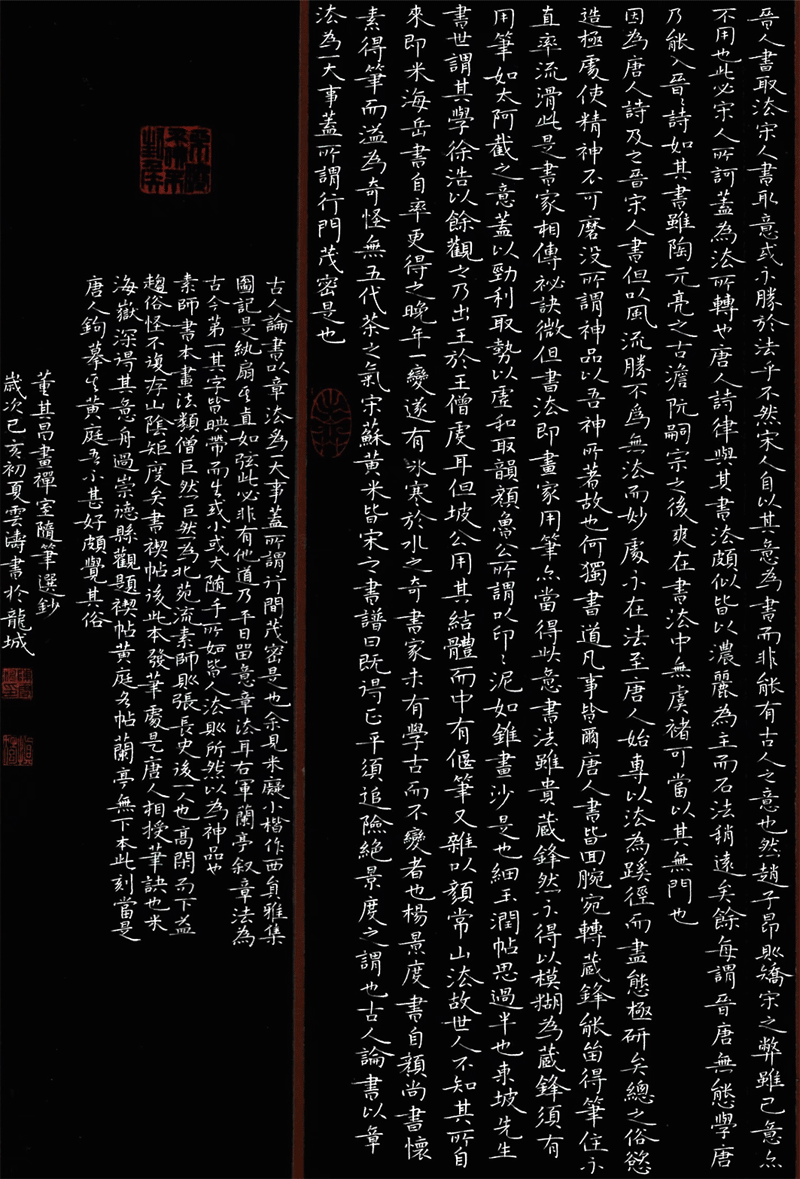 晉人書取法宋人書取意或亦勝於法乎不然宋人自以其意為書而非能有古人之意也然趙子昂則矯宋之弊雖己意亦
不用也此必宋人所訶蓋為法所轉也唐人詩律與其書法頗似皆以濃麗為主而石法稍遠矣餘每謂晉唐無態學唐
乃能入晉晉詩如其書雖陶元亮之古澹阮嗣宗之後爽在書法中無虞褚可當以其無門也
因為唐人詩及之晉宋人書但以風流勝不為無法而妙處亦在法至唐人始專以法為蹊徑而盡態極研矣總之俗慾
造極處使精神不可磨没所謂神品以吾神所著故也何獨書道凡事皆爾唐人書皆面腕宛轉藏鋒能笛得筆住不
直率流滑此是書家相傳祕訣微但書法即畫家用筆亦當得此意書法雖貴藏鋒然不得以模糊為藏鋒須有
用筆如太阿截之意蓋以勁利取勢以虛和取韻顏魯公所謂以印印泥如錐畫沙是也細玉潤帖思過半也東坡先生
書世謂其學徐浩以餘觀之乃出王於王僧虔耳但坡公用其結體而中有偃筆又雜以顏常山法故世人不知其所自
來即米海岳書自率更得之晚年一變遂有冰寒於水之奇書家未有學古而不變者也楊景度書自顏尚書懷
素得筆而溢為奇怪無五代茶之氣宋蘇黃米皆宋之書譜曰既得正平須追險絕景度之謂也古人論書以章
法為一大事蓋所謂行門茂密是也
古人論書以章法為一大事蓋所謂行間茂密是也余見米癡小楷作西員雅集
圖記是紈扇其直如弦此必非有他道乃平日留意章法耳右軍蘭亭叙章法為
古今第一其字皆映帶而生或小或大随手所如皆入法則所然以為神品也
素師書本畫法類僧巨然巨然為北苑流素師則張長史後一人也高閑而下益
趨俗怪不復存山陰矩度矣書禊帖後此本發筆處是唐人相授筆訣也米
海嶽深得其意舟過崇德縣觀題禊帖黃庭各帖蘭亭無下本此刻當是
唐人鉤摹其黃庭吾不甚好頗覺其俗
董其昌畫禪室隨筆選鈔
歲次己亥初夏雲濤書於龍城